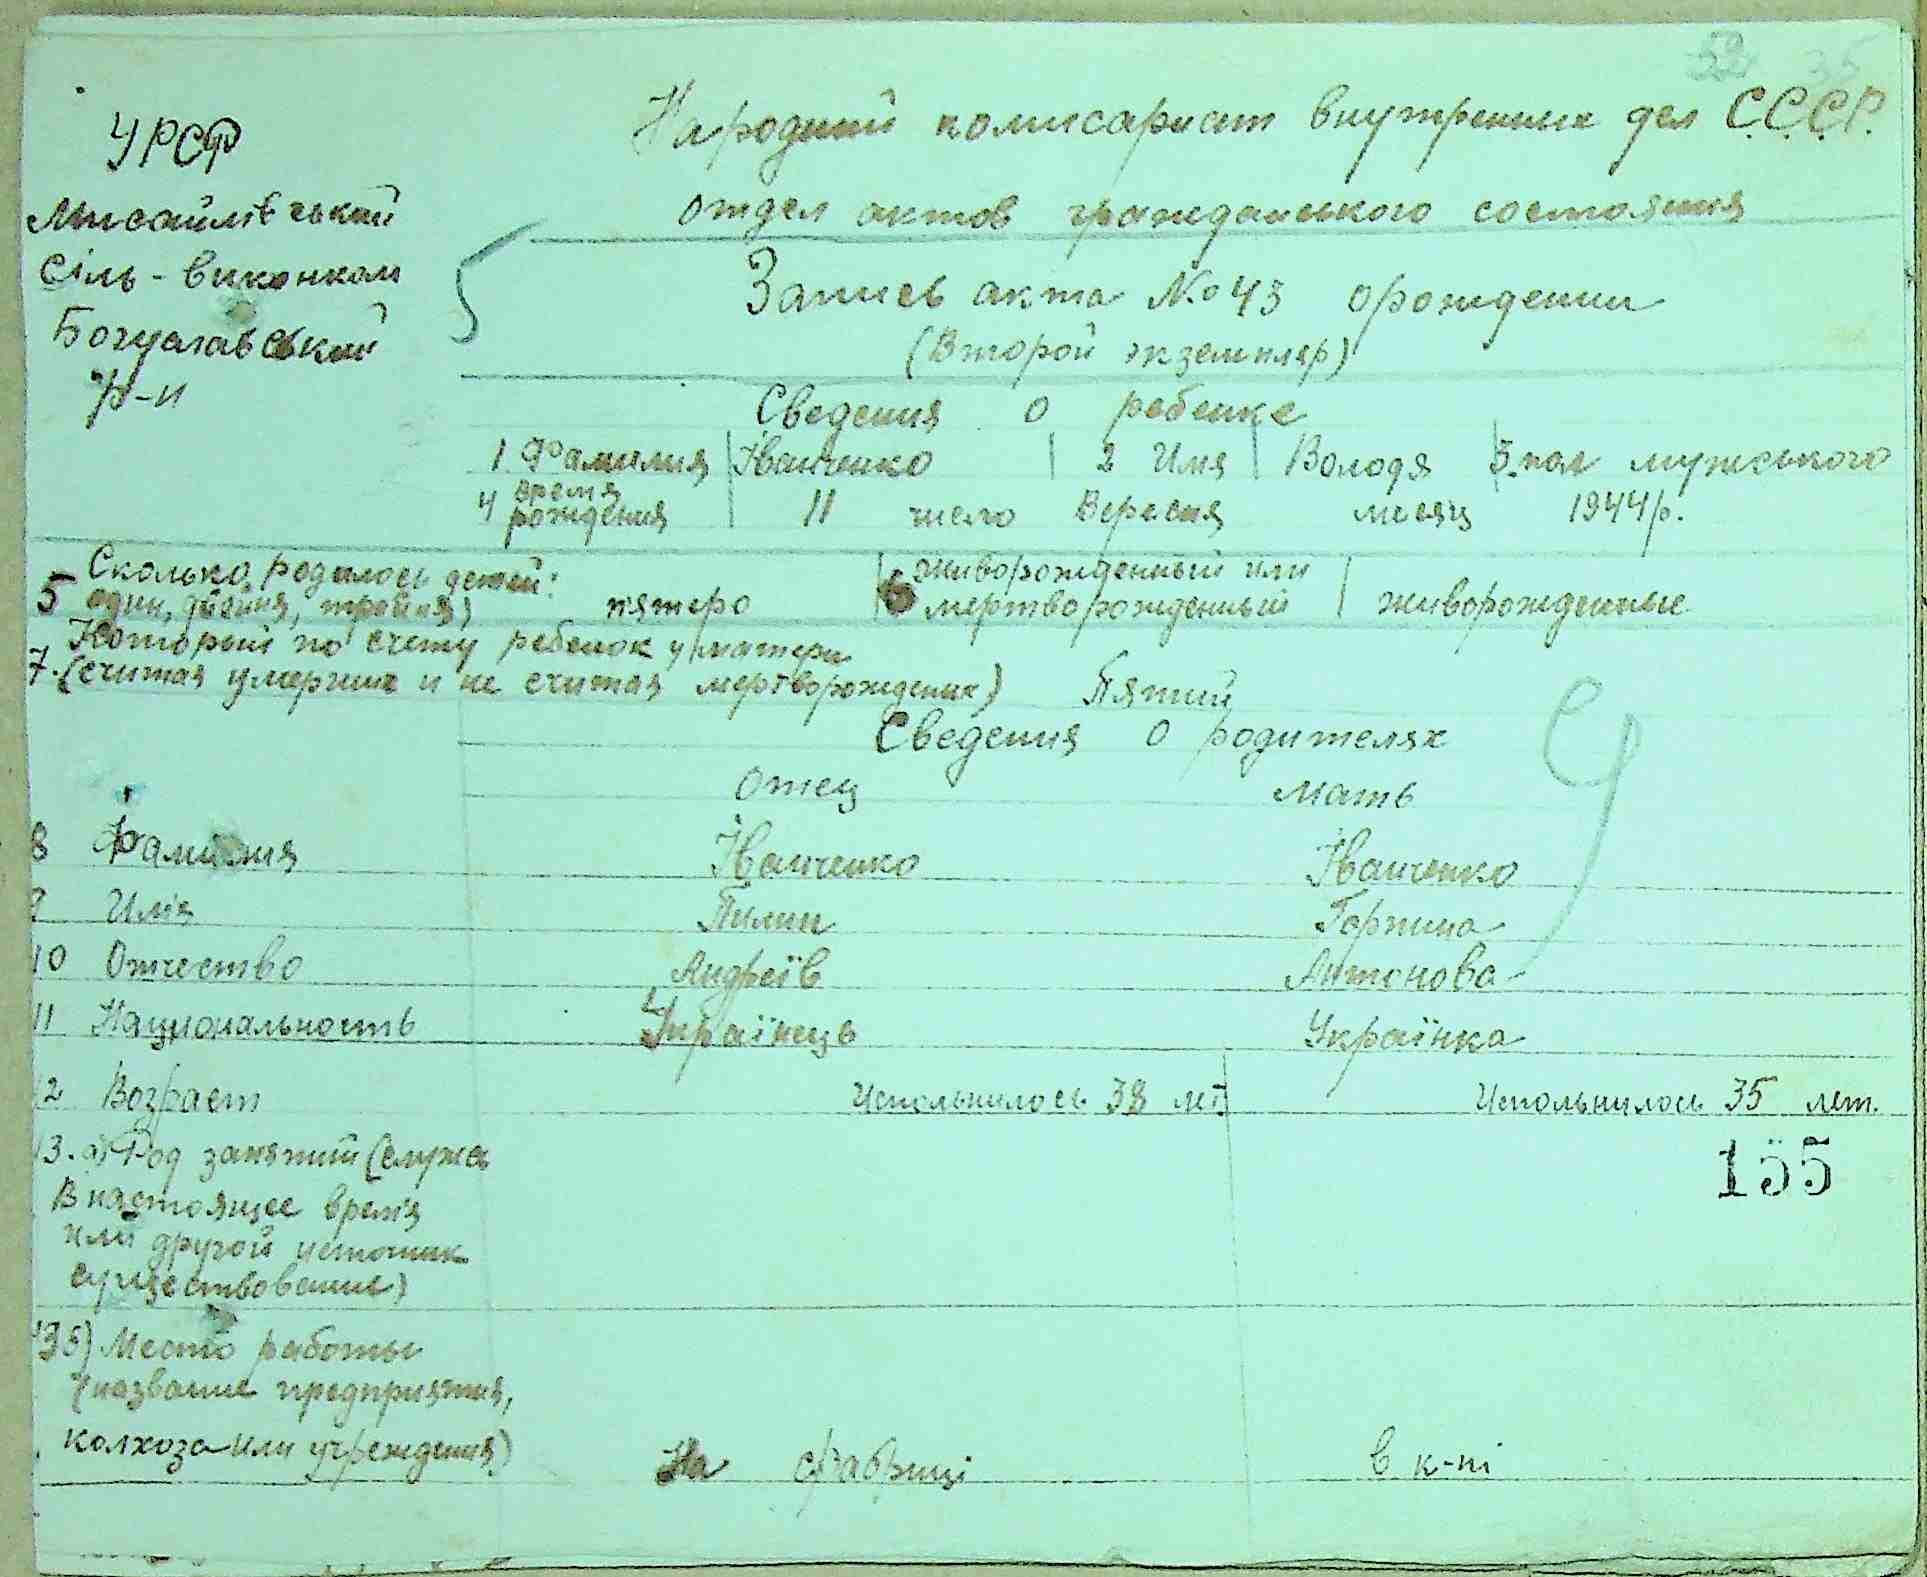 52 35
УРСР
Мисайлівський
Сіль-виконком
Богуславський
р-н
Народний комисариат внутренних дел С.С.С.Р.
отдел актов гражданського состояния
Запись акта №43 о рождении
(Второй экземпляр)
Сведения о ребенке
1 Фамилия Іванченко 2 Имя Володя 3. пол мужського
4 время рождения 11 число Вересня месяц 1944 р.
5 Сколько родилось детей: один, двойня, тройня) пятеро 6 живорожденный или мертворожденный живорожденные
Который по счету ребенок у матери
7. (считая умерших и не считая мертворожденых) Пятий
Сведения о родителях
Отец Мать
8 Фамилия Іванченко Іванченко
9 Имя Пилип Горпина
10 Отчество Андреїв Антонова
11 Национальность Українець Українка
12 Возраст Испольнилось 38 лет Испольнилось 35 лет.
13. а) Род занятий (служа
В настоящее время
или другой источник
существование)
155
13 б) Место работы
(название предприятия,
колхоза или учреждения) На фабриці в к-пі